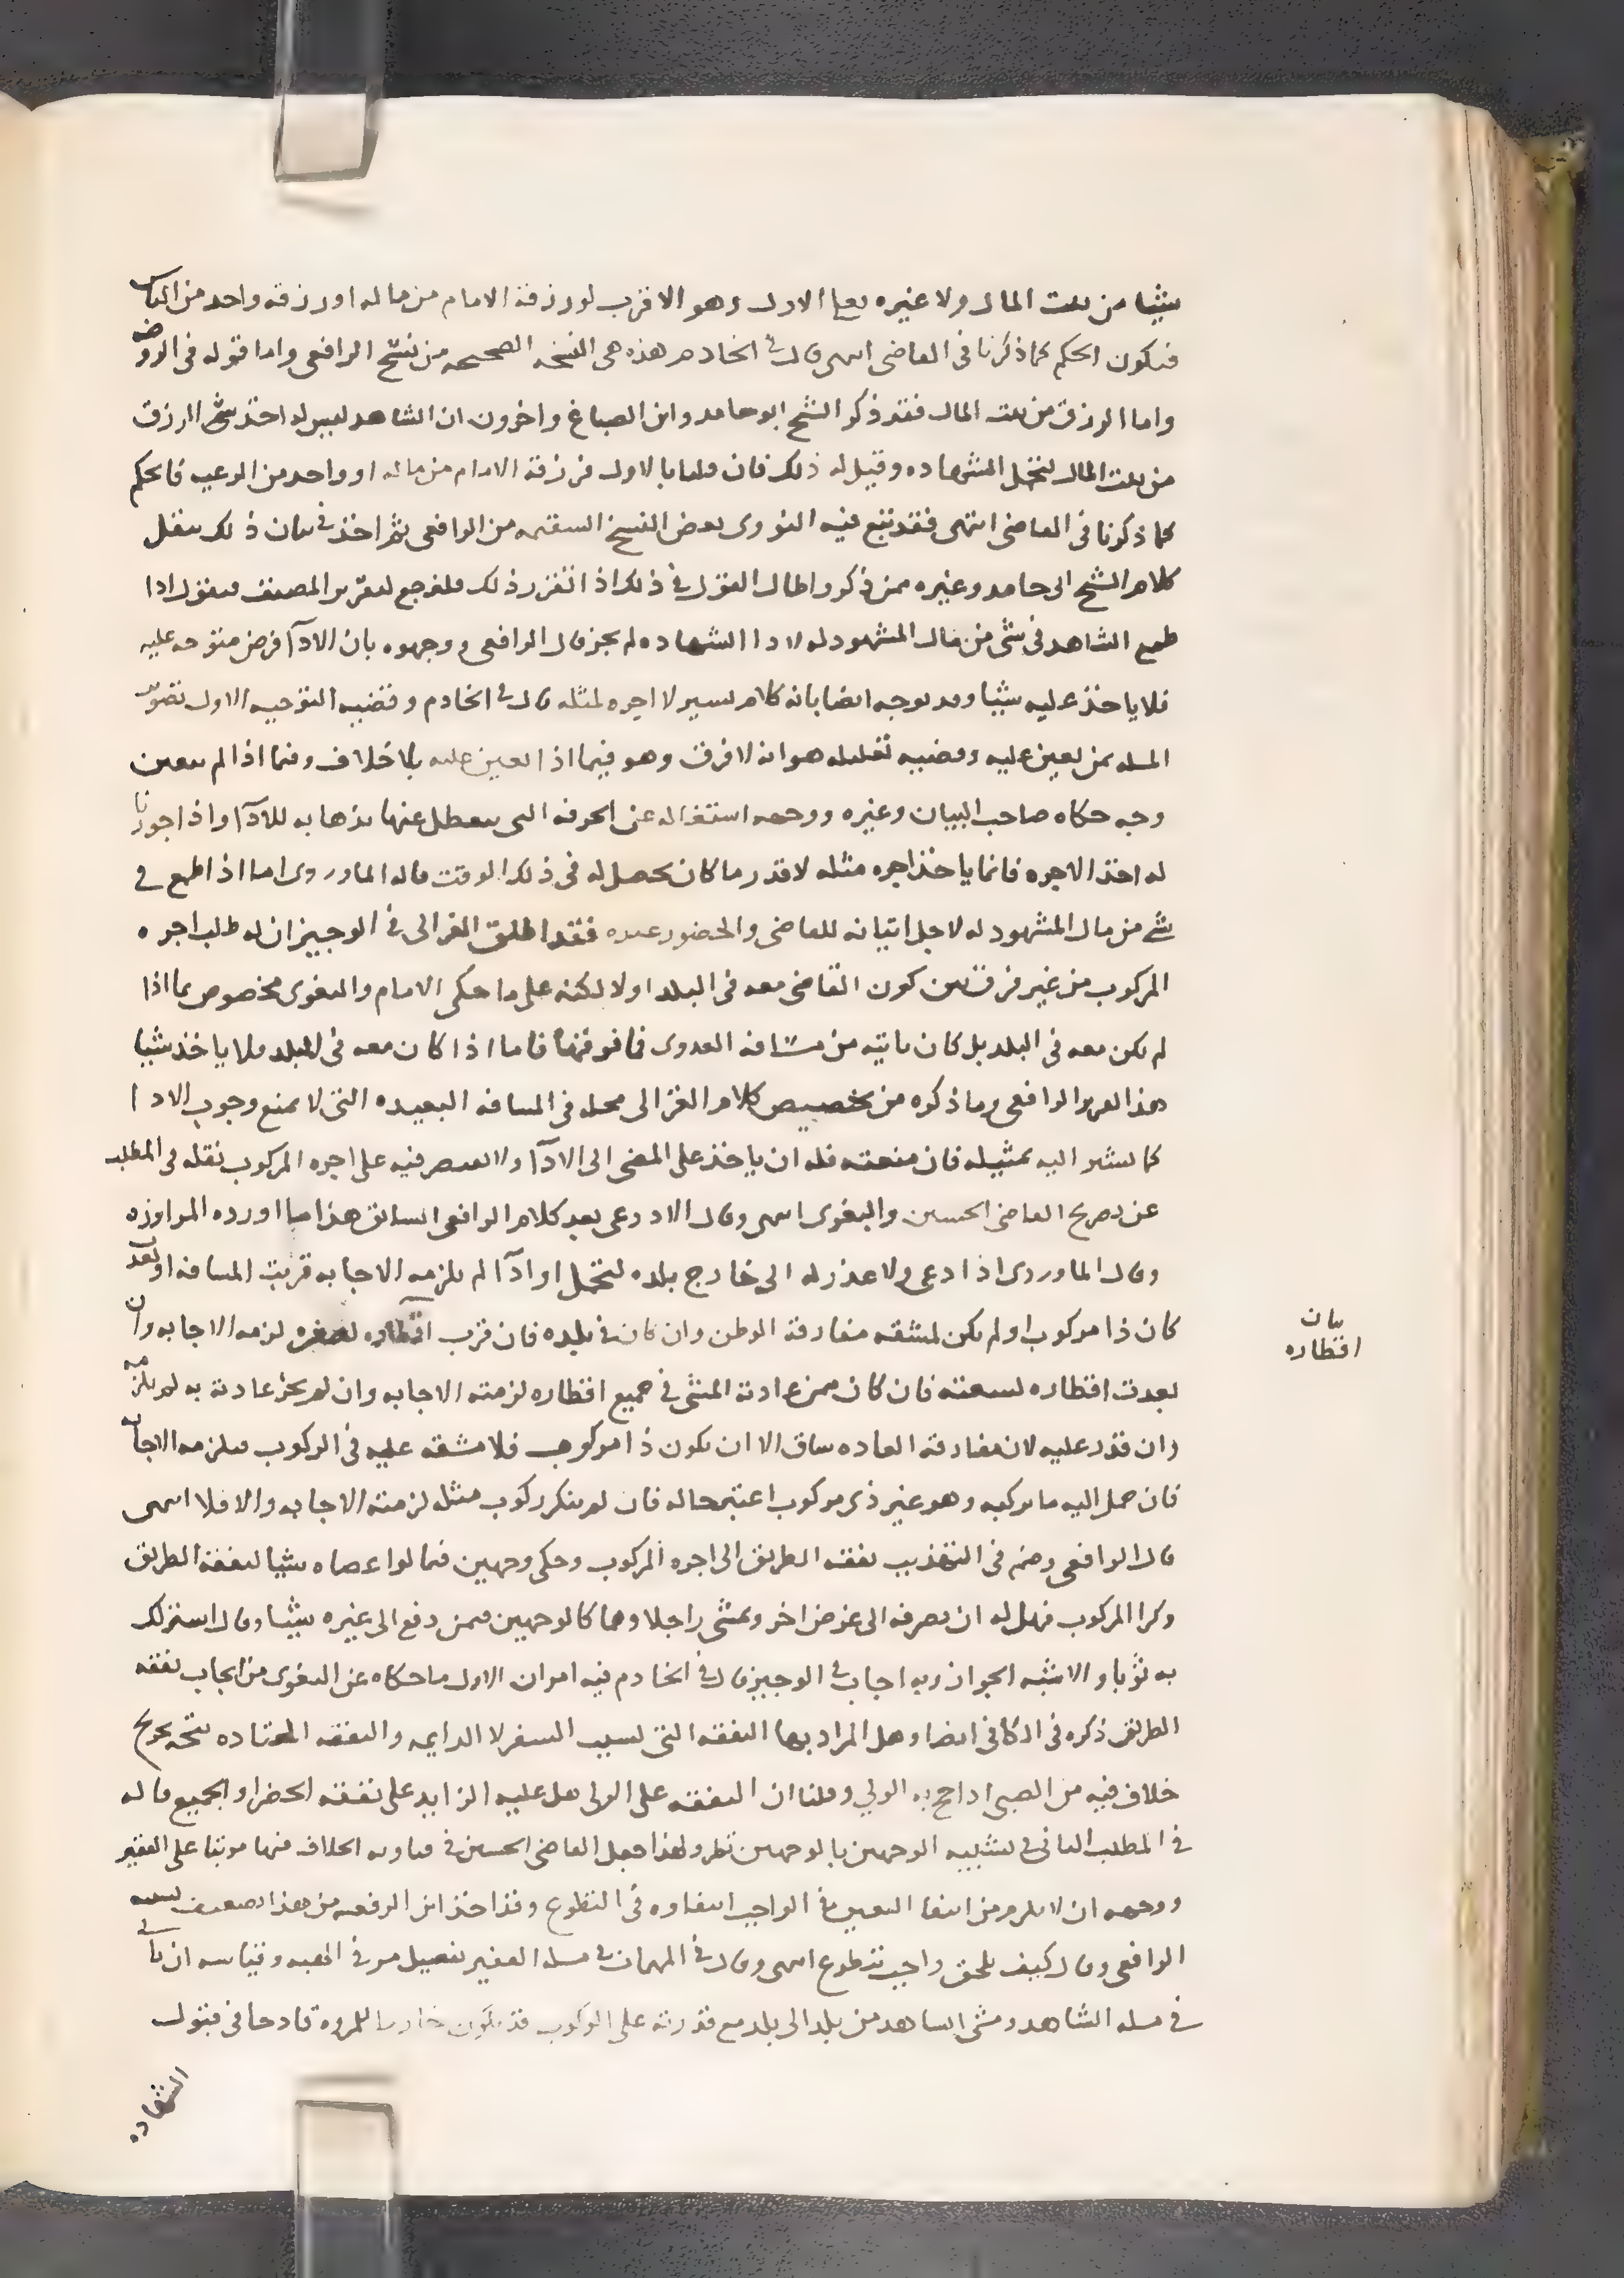 شيئا من بيت المال ولا غيره فعلى الاول وهو الاقرب لو رزقه الامام من ماله او رزقه واحد من الناس
فيكون الحكم كما ذكرنا فى القاضى انتهى قال فى الخادم هذه هى النسخه الصحيحه من نسخ الرافعى واما قوله فى الروضه
واما الرزق من بيت المال فقد ذكر الشيخ ابو حامد وابن الصباغ واخرون ان الشاهد ليس له اخذ شى الرزق
من بيت المال لتحمل الشهاده وقيل له ذلك فان قلنا بالاول فرزقه الامام من ماله او واحد من الرعيه فالحكم
كما ذكرنا فى القاضى انتهى فقد تبع فيه النووى بعض النسخ السقيمه من الرافعى ثم اخذ فى بيان ذلك بنقل
كلام الشيخ ابى حامد وغيره ممن ذكر واطال القول فى ذلك اذا تقرر ذلك فلنرجع لتقرير المصنف فنقول اذا
طمع الشاهد فى شى من مال المشهود له لادا الشهاده لم يجز قال الرافعى ووجهوه بان الادآ فرض متوجه عليه
فلا ياخذ عليه شيئا وقد يوجه ايضا بانه كلام يسير لا اجره لمثله قال فى الخادم وقضيه التوجيه الاول تصوير
المسله بمن تعين عليه وقضيه تعليله هو انه لا فرق وهو فيما اذا تعين عليه بلا خلاف وفيما اذا لم يتعين
وجه حكاه صاحب البيان وغيره ووجهه استغاله عن الحرفه التى يتعطل عنها بذهابه للادآ واذا جوزنا
له اخذ الاجره فانما ياخذ اجره مثله لا قدر ما كان يحصل له فى ذلك الوقت قاله الماوردى اما اذا طمع فى
شى من مال المشهود له لاجل اتيانه للقاضى والحضور عنده فقد اطلق الغزالى فى الوجيز ان له طلب اجره
المركوب من غير فرق بين كون القاضى معه فى البلد اولا لكنه على ما حكى الامام والبغوى مخصوص بما اذا
لم يكن معه فى البلد بل كان ياتيه من مسافه العدوى فما فوقها فاما اذا كان معه فى البلد فلا ياخذ شيئا
هذا تقرير الرافعى وما ذكره من تخصيص كلام الغزالى محله فى المسافه البعيده التى لا تمنع وجوب الادا
كما يشير اليه تمثيله فان منعته فله ان ياخذ على المضى الى الادآ ولا يقتصر فيه على اجره المركوب نقله فى المطلب
عن تصريح القاضى الحسين والبغوى انتهى وقال الاذرعى بعد كلام الرافعى السابق هذا ما اورده المراوزه
وقال الماوردى اذا دعى ولا عذر له الى خارج بلده لتحمل او ادآ لم يلزمه الاجابه قربت المسافه او بعدت
كان ذا مركوب او لم يكن لمشقه مفارقه الوطن وان كان فى بلده فان قرب اقطاره لصغره لزمه الاجابه وان
بعدت اقطاره لسعته فان كان ممن عادته المشى فى جميع اقطاره لزمته الاجابه وان لم تجر عادته به لم يلزمه
وان قدر عليه لان مفارقه العاده شاق الا ان يكون ذا مركوب فلا مشقه عليه فى الركوب فيلزمه الاجابه
فان حمل اليه ما يركبه وهو غير ذى مركوب اعتبر حاله فان لم ينكر ركوب مثله لزمته الاجابه والا فلا انتهى
قال الرافعى وضم فى التهذيب نفقه الطريق الى اجره المركوب وحكى وجهين فيما لو اعطاه شيئا لنفقه الطريق
وكرا المركوب فهل له ان يصرفه الى غرض اخر ويمشى راجلا وهما كالوجهين فيمن دفع الى غيره شيئا وقال اشتر لك
به ثوبا والاشبه الجواز وبه اجاب فى الوجيز قال فى الخادم فيه امران الاول ما حكاه عن البغوى من ايجاب نفقه
الطريق ذكره فى الكافى ايضا وهل المراد بها النفقه التى بسبب السفر لا الدايمه والنفقه المعتاده يتجه تخريج
خلاف فيه من الصبى اذا حج به الولي وقلنا ان النفقه على الولى هل عليه الزايد على نفقه الحضر او الجميع قاله
فى المطلب الثانى فى تشبيه الوجهين بالوجهين نظر ولهذا جعل القاضى الحسين فى فتاويه الخلاف فيها مرتبا على الفقير
ووجهه ان لا يلزم من انتفا التعيين فى الواجب انتفاوه فى التطوع وقد اخذ ابن الرفعه من هذا تضعيف تشبيه
الرافعى وقال كيف يلحق واجب بتطوع انتهى وقال فى المهمات فى مسله الفقير تفصيل مر فى الهبه وقياسه ان ياتى
فى مسله الشاهد ومشى الشاهد من بلد الى بلد مع قدرته على الركوب قد يكون خارما للمروه قادحا فى قبول
الشهاده
بيان
اقطاره